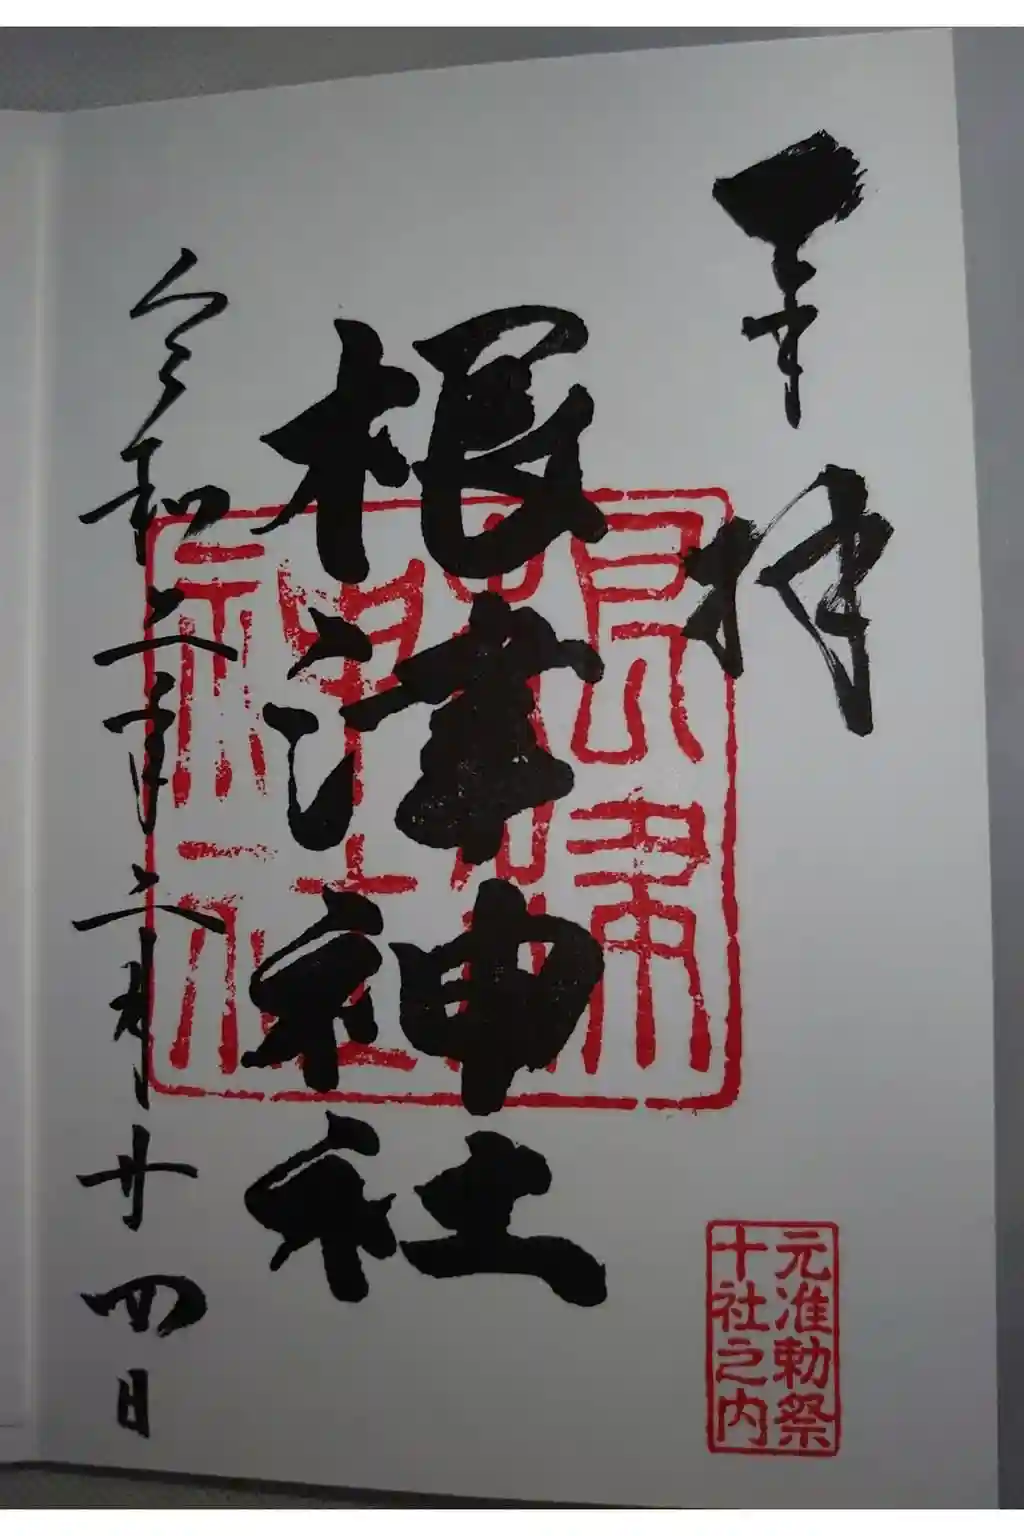 奉拝
根津神社
令和二年二月廿四日
根津
神社
元准勅祭
十社之内